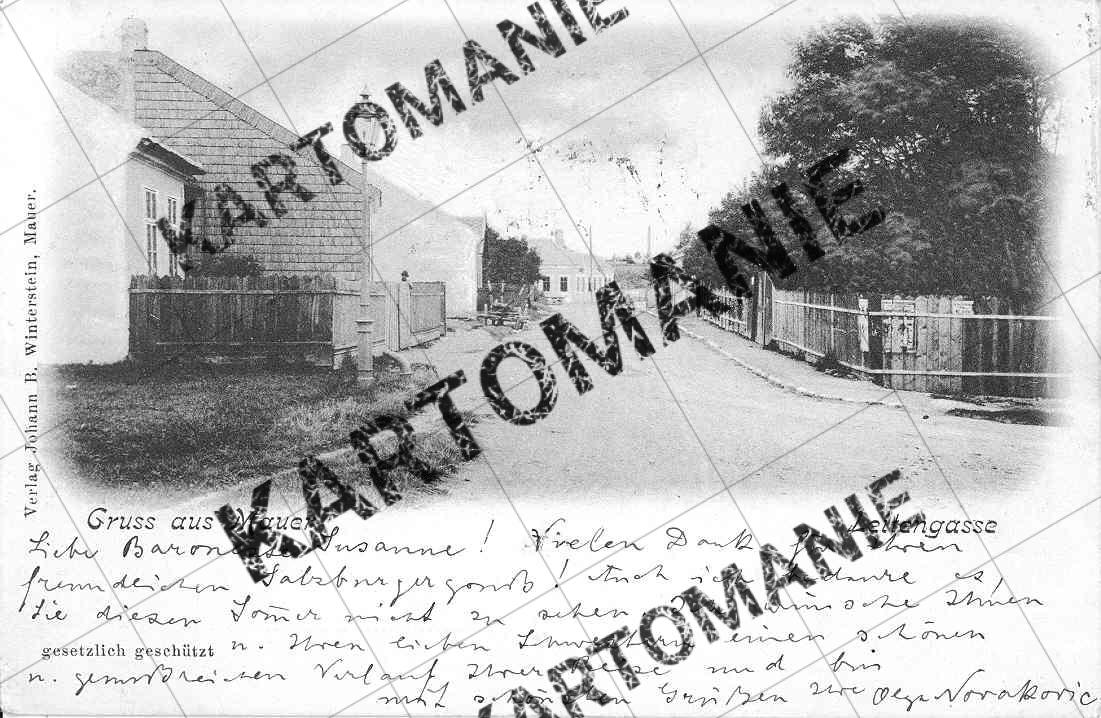 KARTOMANIE
KARTOMANIE
KARTOMANIE
Verlag Johann B. Winterstein, Mauer.
Gruss aus Mauer
Zeltengasse
Liebe Baronesse Susanne! Vielen Dank für Ihren
freundlichen Salzburgergruß! Auch ich bedaure es,
Sie diesen Somer nicht zu sehen. Ich wünsche Ihnen
gesetzlich geschützt
u. Ihren lieben Schwestern einen schönen
u. genußreichen Verlauf Ihrer Reise und bin
mit schönsten Grüßen Ihre Olga Novakovic